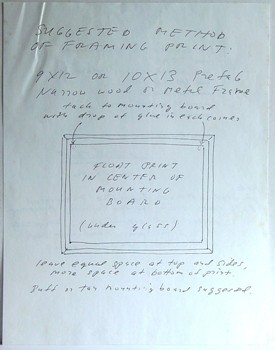 SUGGESTED METHOD
OF FRAMING PRINT.
9X12 OR 10X13 Prefab
Narrow wood or metal Frame
tack to mounting board
with drop of glue in each corner
FLOAT PRINT
IN CENTER OF
MOUNTING
BOARD
(Under glass)
leave equal space at top and sides,
more space at bottom of print.
Buff or tan mounting board suggested.